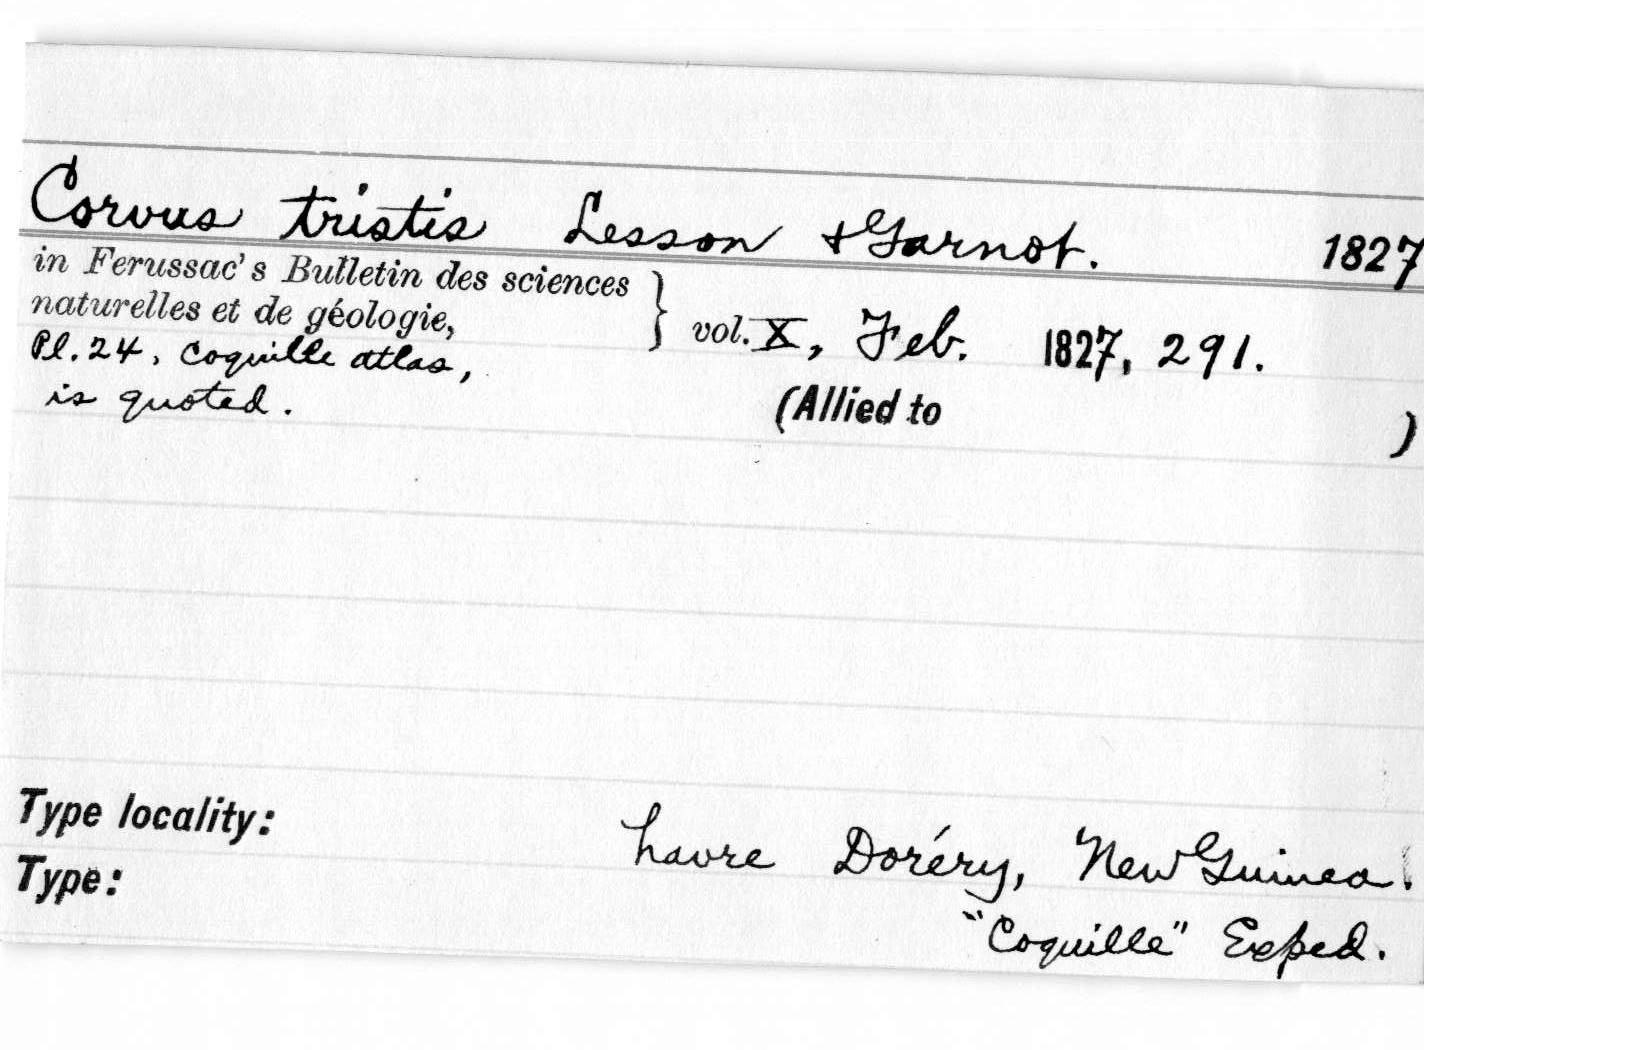 Corvus tristis Lesson & Garnot. 1827
in Ferussac's Bulletin des sciences
naturelles et de géologie, } vol. X, Feb. 1827, 291.
Pl. 24, Coquille atlas,
is quoted. (Allied to )
Type locality: havre Doréry, New Guinea.
Type: "Coquille" Exped.